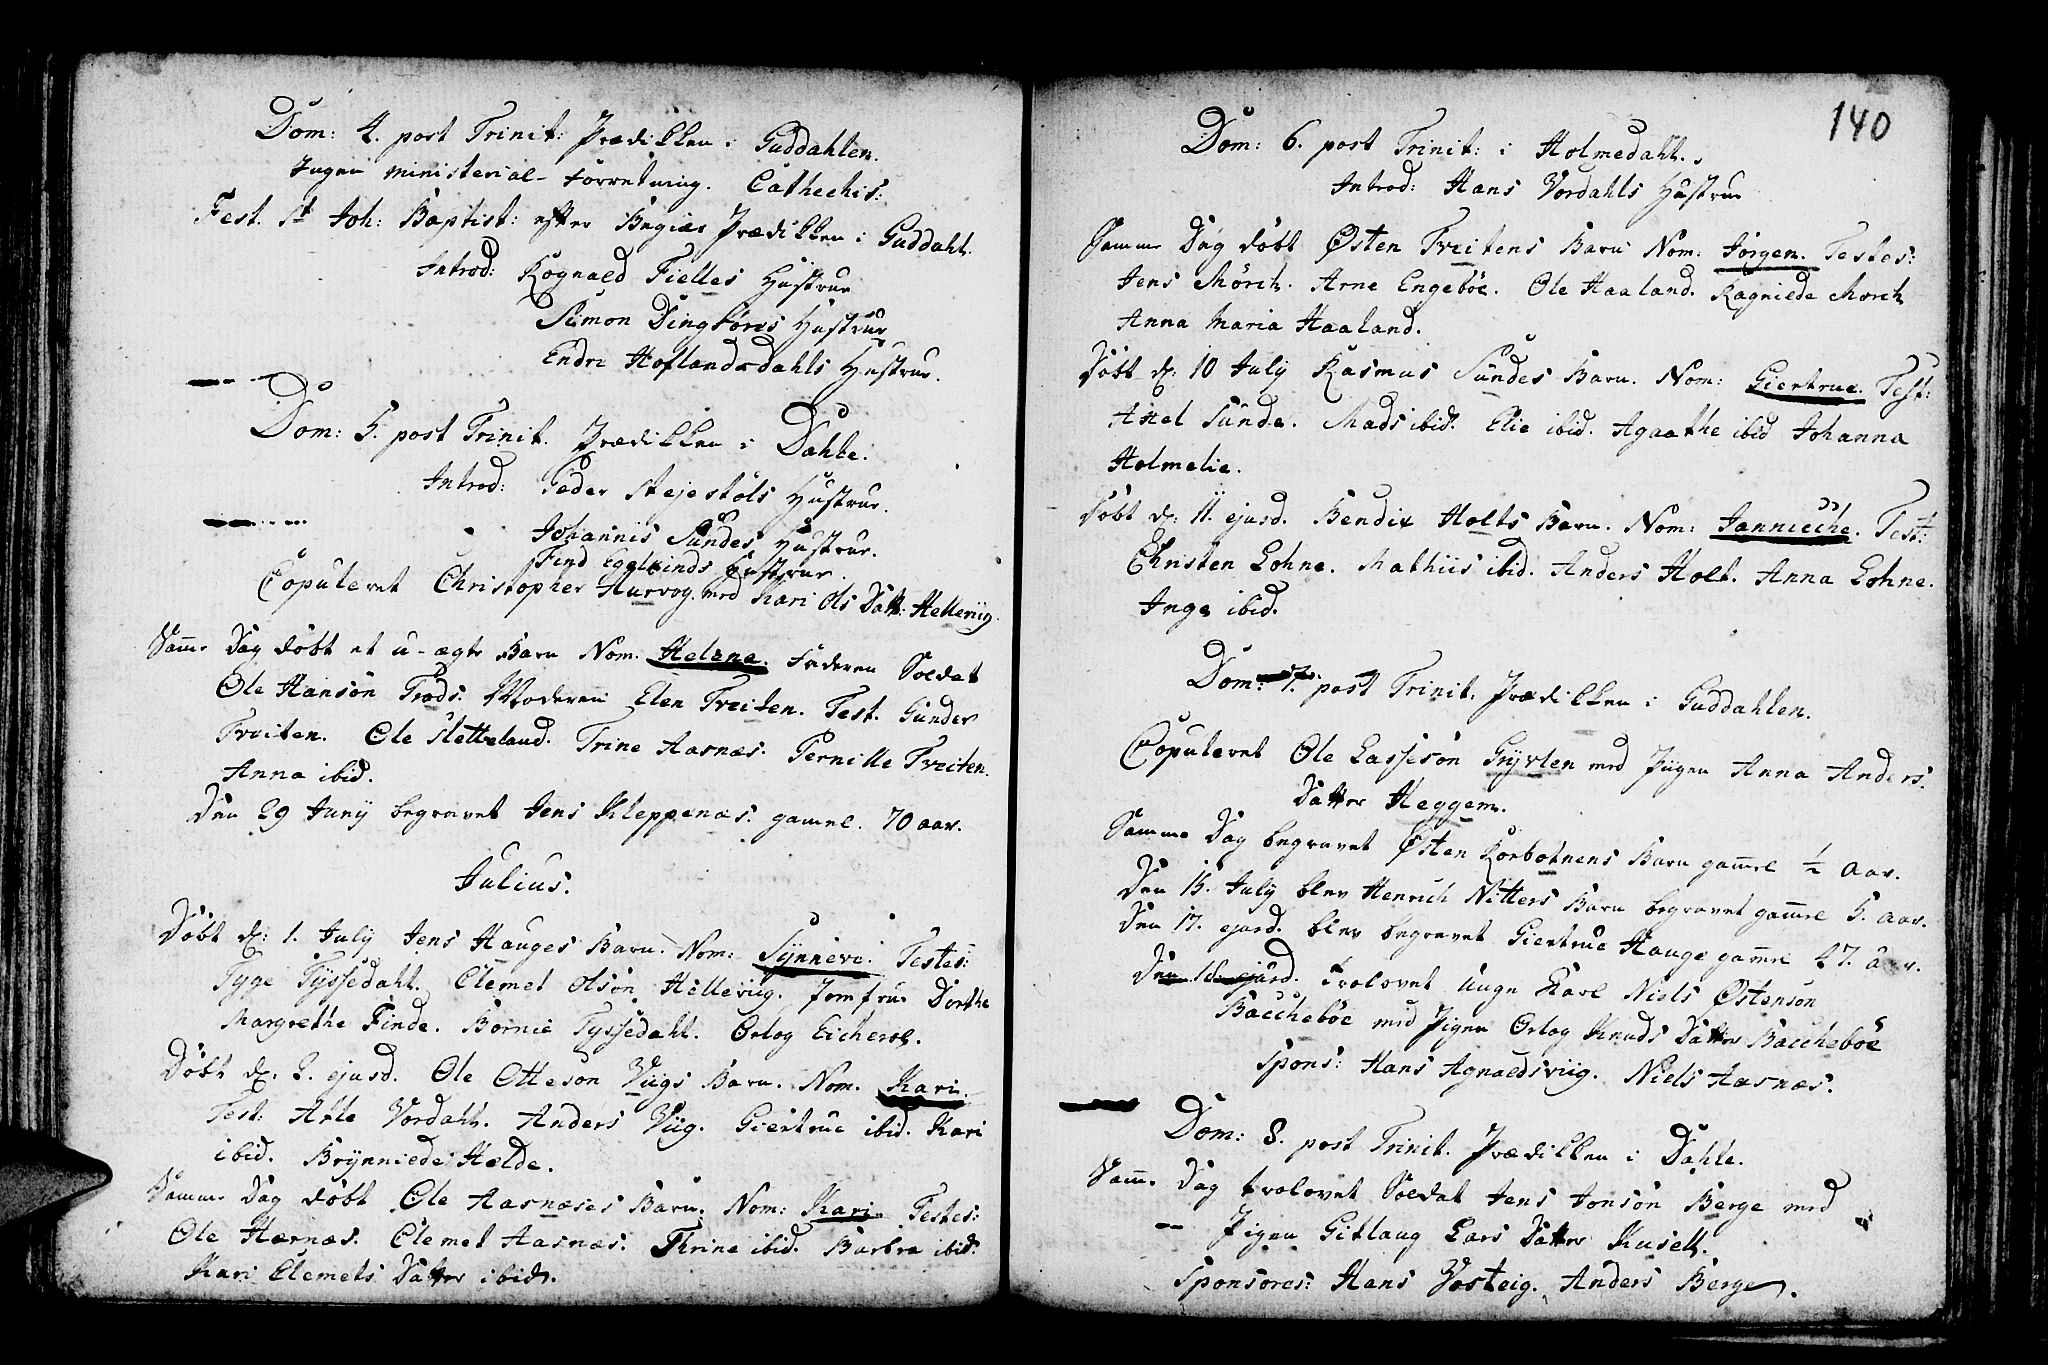 Dom: 4. post Trinit: Prædikken i Guddahlen.
Ingen ministerial-forretning. Cathechis:
Fest. St Joh: Baptist: efter Begiær Prædikken i Guddahl.
Introd: Rognald Fielles Hustrue
Simon Dingføris Hustrue
Endre Hoflandsdahls Hustrue.
Dom: 5. post Trinit. Prædikken i Dahle.
Introd: Peder Stejestöls Hustrue.
Johannis Sundes Hustrue.
Find Hustrue.
Copuleret Christopher Hurvog med Kari Ols Datt: Hellevig.
Samme Dag döbt et u-ægte Barn Nom. Helene. Faderen Soldat
Ole Hansön Trods. Moderen Elen Tveiten. Test. Gunder
Tveiten. Ole Sletteland. Trine Aasnæs. Pernille Tveiten.
Anna ibid.
Den 29 Junij begravet Jens Kleppenæs. gamel. 70 aar.
Julius.
Döbt d: 1. July Jens Hauges Barn. Nom: Synnevi. Testes:
Tyge Tyssedahl. Clemet Olsön Hellevig. Jomfrue Dorthe
Margrethe Finde. Bornie Tyssedahl. Orlog
Döbt d. 2. ejusd. Ole Otteson Viigs Barn. Nom. Kari.
Test: Atle Vordahl. Anders Viig. Giertrue ibid. Kari
ibid. Brynniede Hælde.
Samme Dag döbt Ole Aasnæses Barn. Nom: Kari. Testes:
Ole Hærnæs. Clemet Aasnæs. Thrine ibid. Barbra ibid.
Kari Clemets Datter ibid.
140
Dom: 6. post Trinit: i Holmedahl.
Introd: Hans Vordahls Hustrue
Samme Dag döbt Østen Tveitens Barn Nom. Jörgen. Testes:
Jens Mörch. Arne Engeböe. Ole Haaland. Ragniede Mörch
Anna Maria Haaland.
Döbt d: 10 July Rasmus Sundes Barn. Nom: Giertrue. Test:
Axel Sunde. Mads ibid. Elie ibid. Agaathe ibid Johanna
Holmelie.
Döbt d: 11. ejusd. Bendix Holts Barn. Nom: Jannicche. Test:
Christen Lohne. Mathiis ibid. Anders Holt. Anna Lohne.
Inge ibid.
Dom: 7. post Trinit. Prædikken i Guddahlen.
Copuleret Ole Lassesön Gryvlen med Piigen Anna Anders
Datter Heggem.
Samme Dag begravet Østen Korbotnens Barn gamel ½ aar.
Den 15. July blev Henrich Nitters Barn begravet gamel 5. aar.
Den 17. ejusd. blev begravet Giertrue Hauge gamel 47. aar.
Den 18. ejusd. Trolovet Unge Karl Niels Østensön
Baccheböe med Pigen Orlog Knuds Datter Baccheböe
Spons: Hans Agnaldsviig. Niels Aasnæs.
Dom: 8. post Trinit. Prædikken i Dahle.
Samme Dag trolovet Soldat Jens Jonsön Berge med
Pigen Gitlaug Lars Datter Kusell.
Sponsores: Hans Vosteig. Anders Berge.